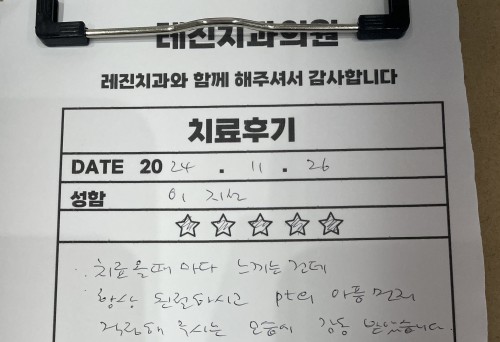 레진치과의원
레진치과와 함께 해주셔서 감사합니다
치료후기
DATE 2024 . 11 . 26
성함 이지선
치료올때 마다 느끼는건데
항상 친절하시고 pt의 아픔먼저
걱정해 주시는 모습에 감동 받았습니다.